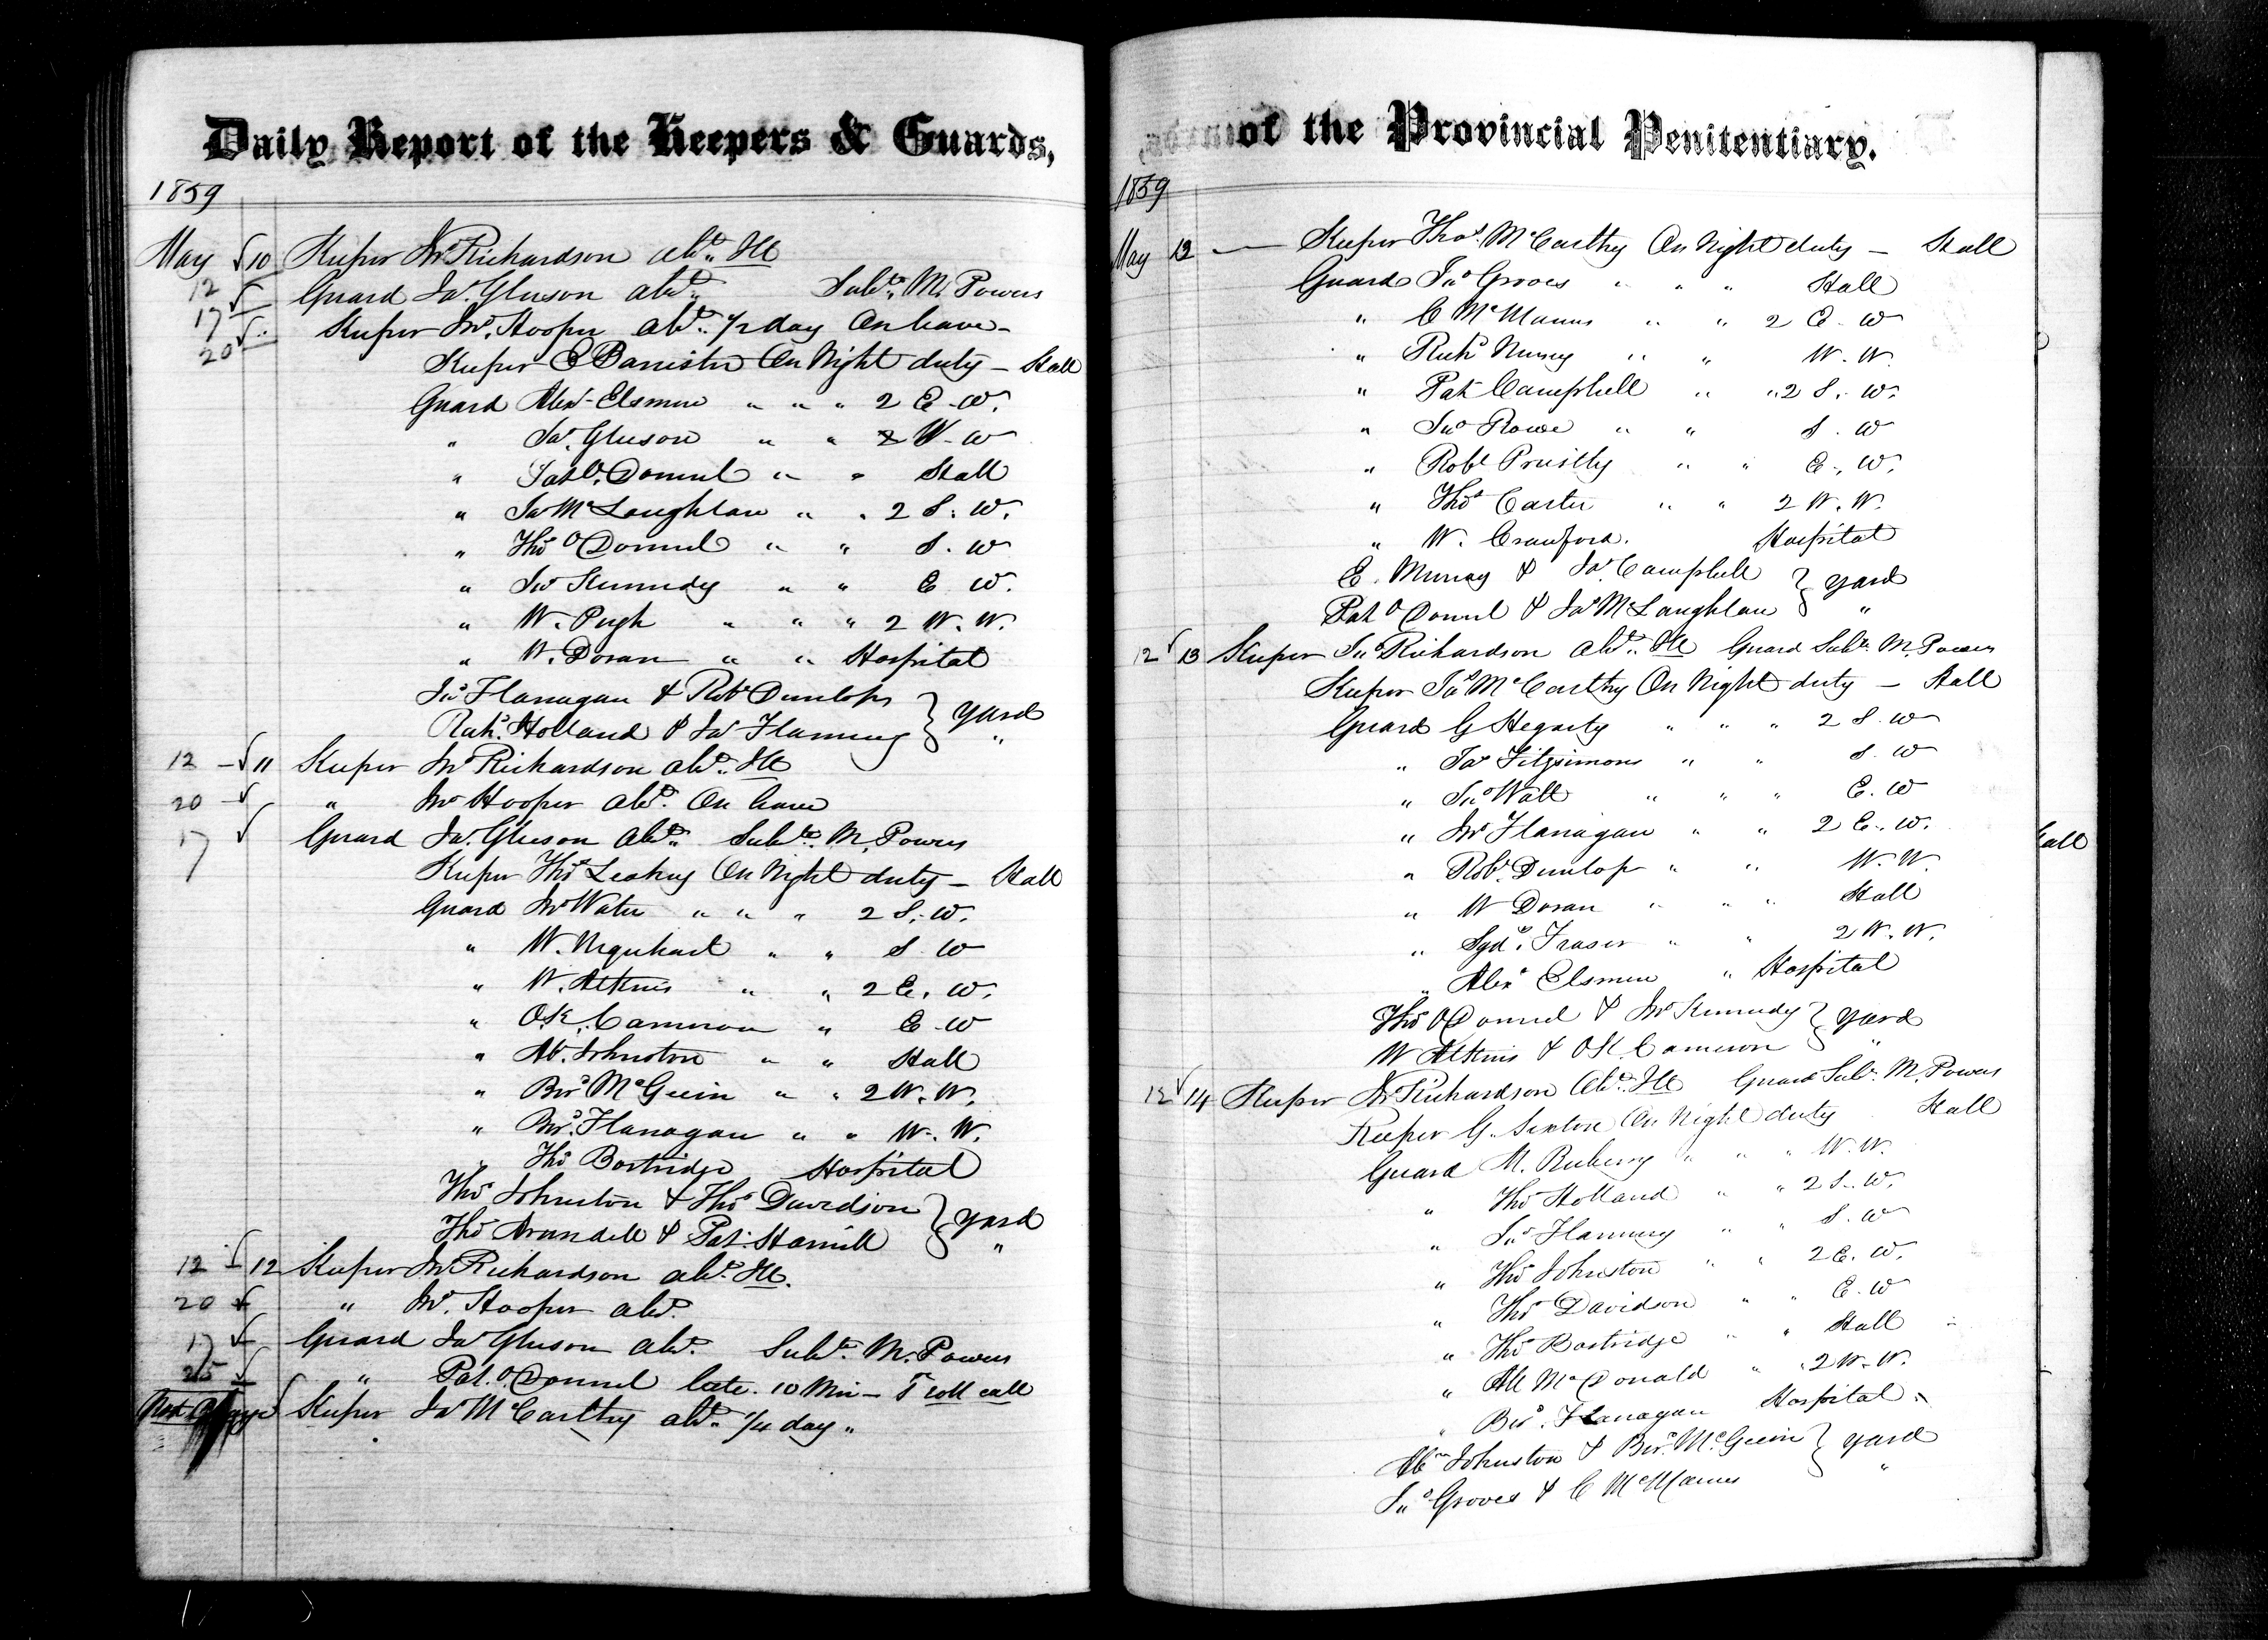 Daily Report of the Keepers & Guards,
1859
May 10 Keeper Jno Richardson abt. Ill
12 Guard Jas. Gleeson abt. Subte. M. Powers
17 Keeper Jno. Hooper abt. 1/2 day On leave
20
Keeper E Bannister On Night duty — Hall
Guard Alexr Elsmere " " " 2 E. W.
" Jas. Gleeson " " W. W
" Patk. O Donnel " " Hall
" Jas McLaughlan " " 2 S. W.
" Thos O Donnel " " S. W
" Jno Kennedy " " E W.
" W. Pugh " " " 2 W. W.
" W. Doran " " Hospital
Jno Flanagan & Robt Dunlop } Yard
Richd. Holland & Jas Flanning } "
12 11 Keeper Jno Richardson abt. Ill
20 " Jno Hooper abt. On leave
17 Guard Jas. Gleeson abt. Subte. M. Powers
Keeper Thos Leahey On Night duty — Hall
Guard Jno Water " " " 2 S. W.
" W. Urquhart " " S. W
" W. Atkins " " 2 E. W.
" O. K. Cameron " E. W
" Ab. Johnston " " Hall
" Bird McGuin " " 2 W. W.
" Bird. Flanagan " " W. W.
" Thos Bostridge Hospital
Thos Johnston & Thos Davidson } Yard
Thos Arundell & Pat. Hamill } "
12 12 Keeper Jno Richardson abt. Ill.
20 " Jno. Hooper abt.
17 Guard Jas Gleeson abt. Subte. M. Powers
25 " Pat. O. Donnel late. 10 Min — roll call
Keeper Jas McCarthy abt. 1/4 day "
of the Provincial Penitentiary.
1859
May 12 — Keeper Thos. McCarthy On Night duty — Hall
Guard Jno Groves " " " Hall
" C McManus " " 2 E. W
" Richd Nursey " " W. W.
" Pat Campbell " " 2 S. W.
" Jno Rowe " " S. W
" Robt Priestly " " E. W.
" Thos Carter " " 2 W. W.
" W. Crawford. Hospital
E. Murray & Jas. Campbell } Yard
Pat O Donnel & Jas McLaughlan } "
12 13 Keeper Jno Richardson abt. Ill Guard Subte. M. Powers
Keeper Jas McCarthy On Night duty — Hall
Guard G Hegarty " " " 2 S. W
" Jas Fitzsimons " " S. W
" Jno Watt " " " E. W
" Jno Flanagan " " 2 E. W.
" Robt. Dunlop " " W. W.
" W Doran " " " Hall
" Sydy. Fraser " " 2 W. W.
" Alexr Elsmere " Hospital
Thos O Donnel & Jno Kennedy } Yard
W Atkins & O K. Cameron } "
12 14 Keeper Jno Richardson Abt. Ill Guard Subt. M. Powers
Keeper G. Sexton On Night duty Hall
Guard M. Ruberry " " " W. W.
" Thos Holland " " 2 S. W.
" Jno Flanning " " S. W
" Thos Johnston " " 2 E. W.
" Thos Davidson " " E. W
" Thos Bostridge " " Hall
" Al McDonald " " 2 W. W.
" Bird. Flanagan Hospital
Abm Johnston & Bird. McGuin } Yard
Jno Groves & C McManus "